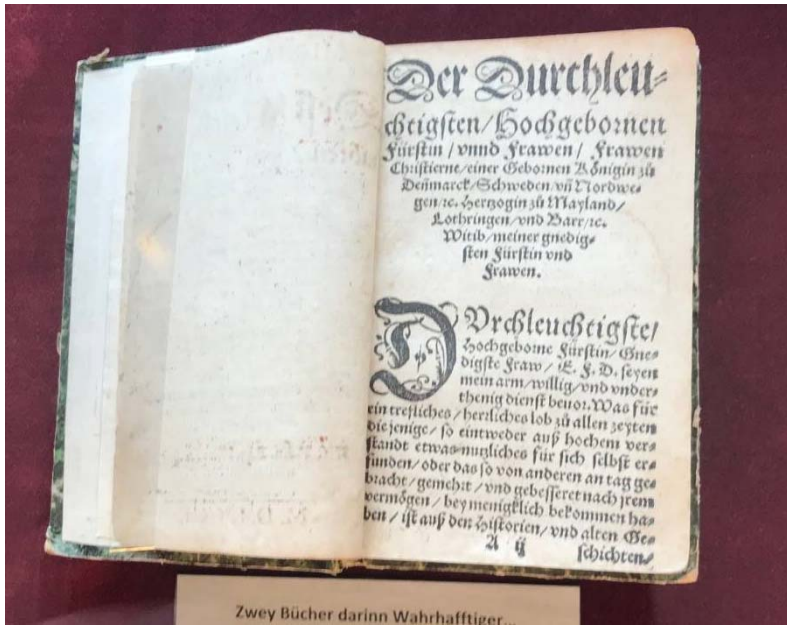 Der Durchleu=
chtigsten/Hochgebornen
Fürstin / vnnd Frawen / Frawen
Christierne/einer Gebornen Königin zů
Deñmarck/Schweden/vñ Nordwe=
gen/ꝛc. Hertzogin zů Mayland/
Lothringen/vnd Barr/ꝛc.
Witib/meiner gnedig=
sten Fürstin vnd
Frawen.
DVrchleuchtigste/
Hochgeborne Fürstin/Gne=
digste Fraw / E. F. D. seyen
mein arm/willig/vnd vnder=
thenig dienst beuor. Was für
ein trefliches/herrliches lob zů allen zeyten
die jenige/so eintweder auß hochem ver=
standt etwas nutzliches für sich selbst er=
funden/oder das so von anderen an tag ge=
bracht/gemehrt/vnd gebesseret nach jrem
vermögen/bey menigklich bekommen ha=
ben/ist auß den Historien/vnd alten Ge=
A ij schichten/
Zwey Bücher darinn Wahrhafftiger...